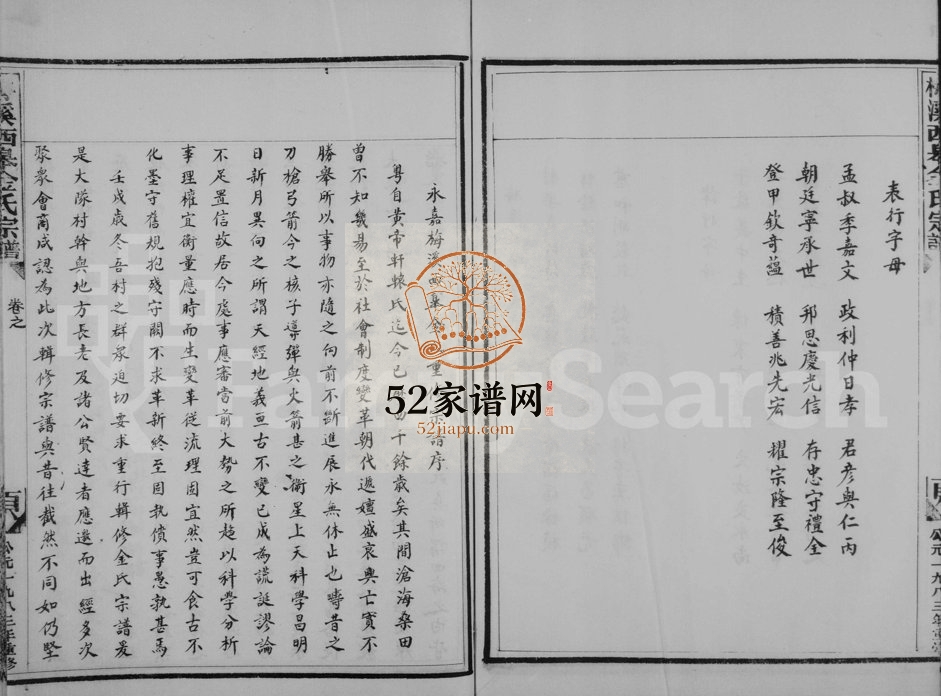 表行字母
孟叔季嘉文 政利仲日孝 君彦與仁丙
朝廷寧承世 邦思慶光信 存忠守禮全
登甲欽奇蘊 積善兆先宏 耀宗隆至俊
永嘉梅溪西 重 宗譜序
粵自黃帝軒轅氏迄今已 四千餘歲矣其間滄海桑田
曾不知幾易至於社會制度變革朝代遞嬗盛衰興亡實不
勝舉所以事物亦隨之向前不斷進展永無休止也疇昔之
刀槍弓箭今之核子導彈與火箭甚之衛星上天科學昌明
日新月異向之所謂天經地義亘古不變已成為謊誕謬論
不足置信故居今處事應審當前大勢之所趨以科學分析
事理權宜衡量應時而生變革從流理固宜然豈可食古不
化墨守舊規抱殘守闕不求革新終至固執僨事愚孰甚焉
壬戌歲冬吾村之群眾迫切要求重行輯修金氏宗譜爰
是大隊村幹與地方長老及諸公賢達者應邀而出經多次
聚眾會商咸認為此次輯修宗譜與昔往截然不同如仍堅
溪西 金氏宗譜
卷之
公元一九八三年重修
梅溪西 金氏宗譜
公元一九八三年重修
52家谱网
52jiapu.com
FamilySearch